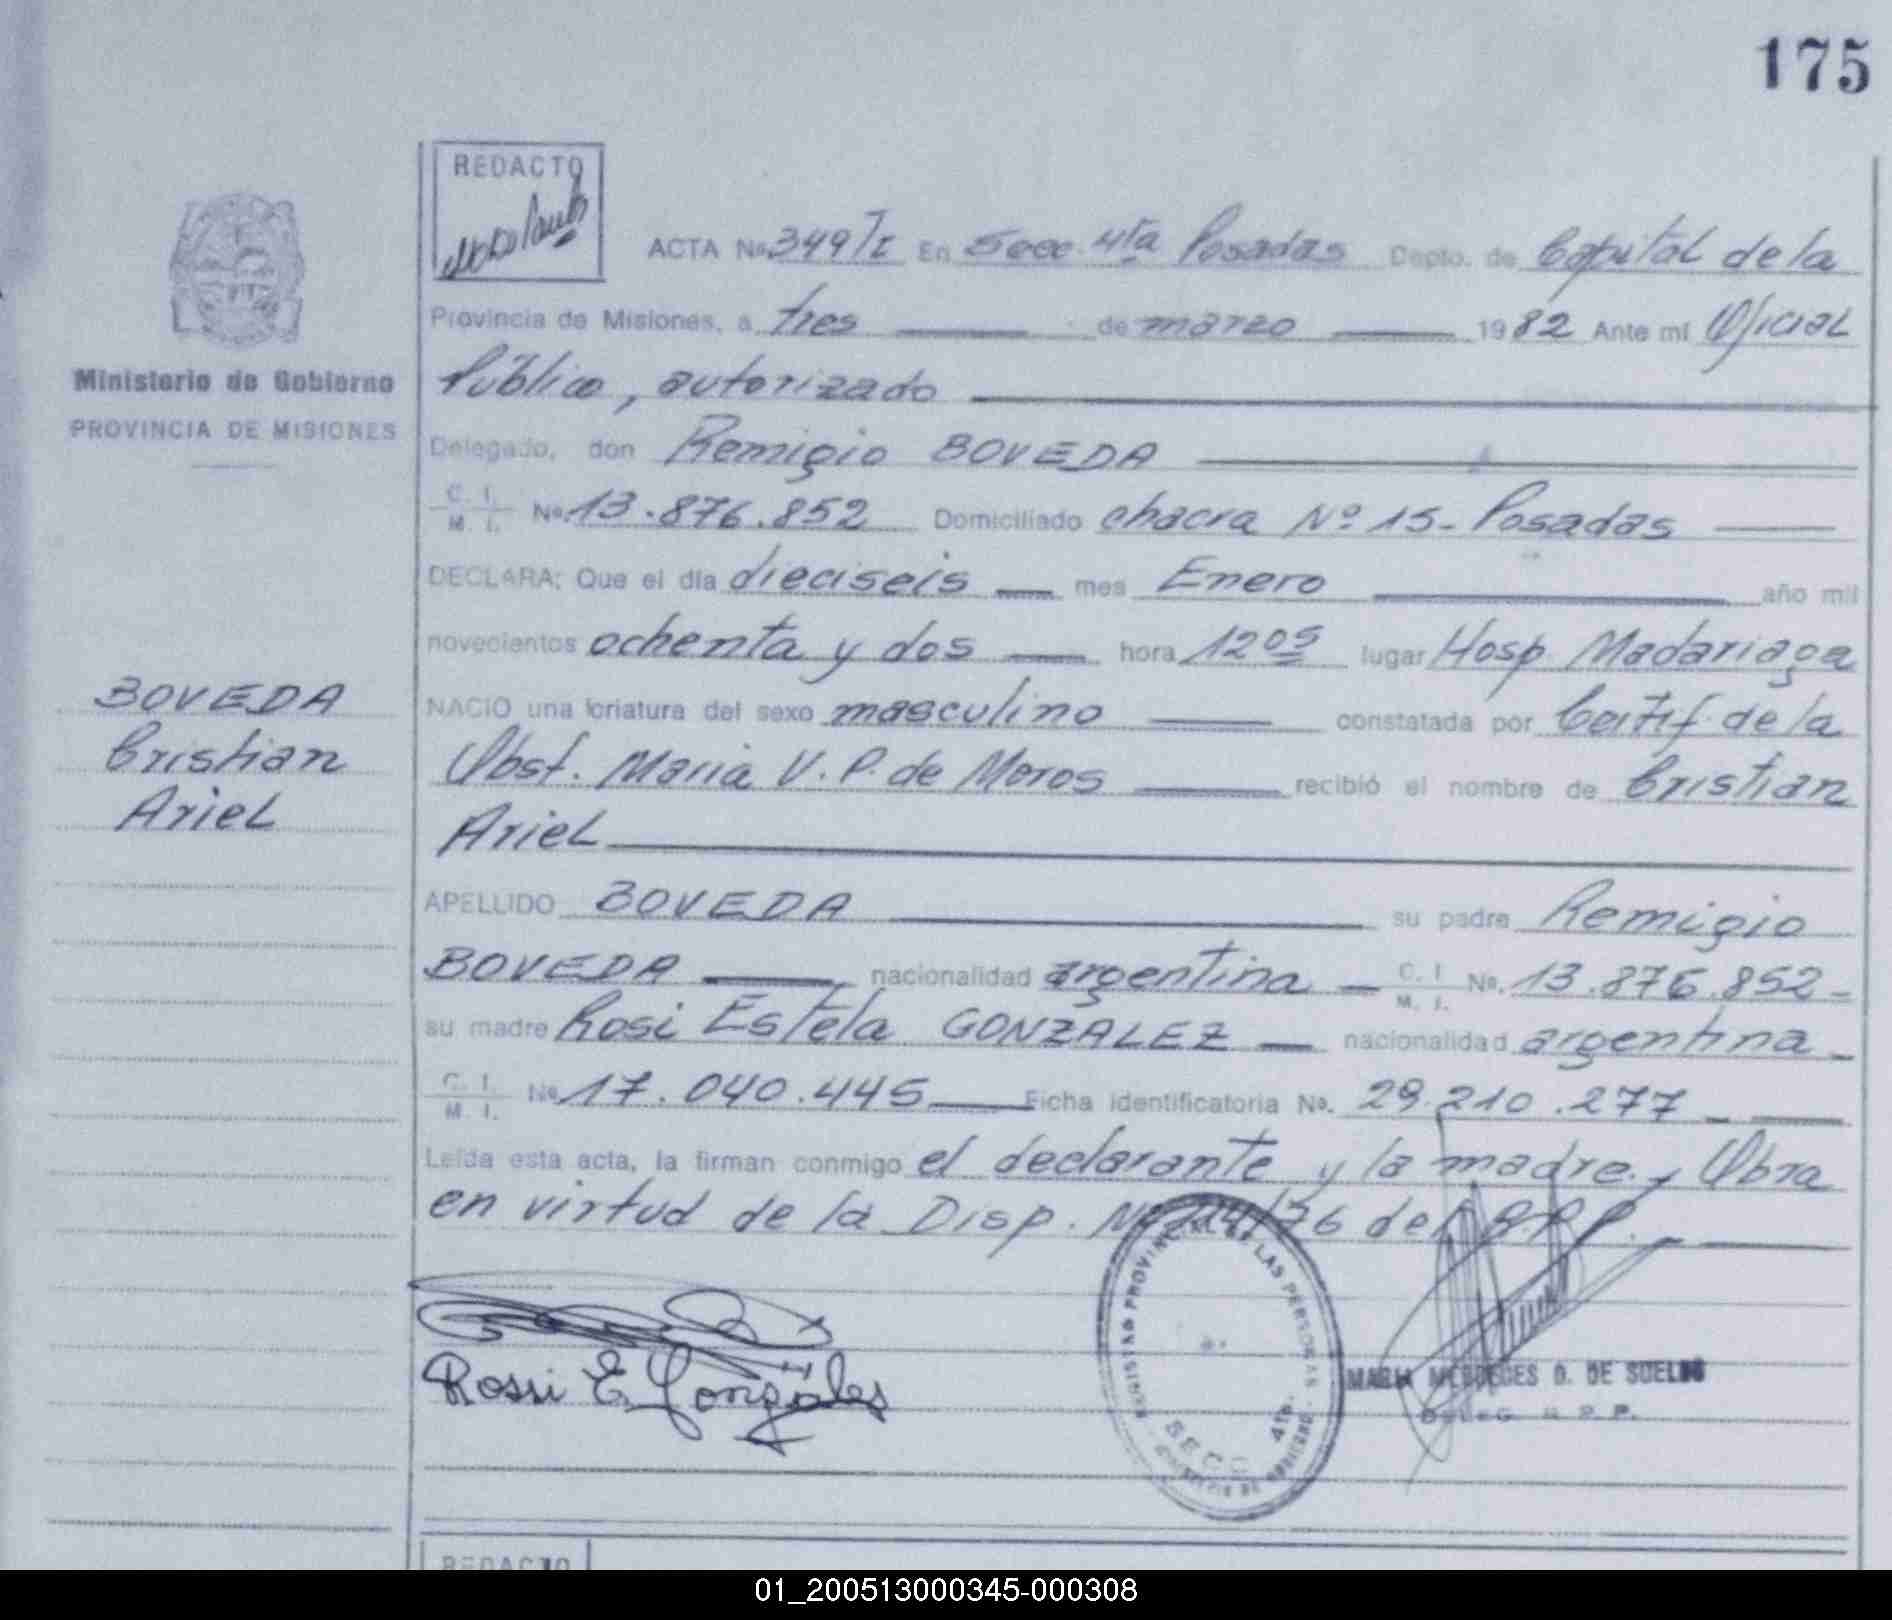 175
REDACTO
ACTA Nº 349/I En Secc. 4ta Posadas Depto. de Capital de la
Provincia de Misiones, a tres de marzo 1982 Ante mí Oficial
Público, autorizado
Delegado, don Remigio BOVEDA
C. I. M. I. Nº 13.876.852 Domiciliado chacra Nº 15 - Posadas
DECLARA: Que el día dieciseis mes Enero año mil
novecientos ochenta y dos hora 12 05 lugar Hosp. Madariaga
NACIO una criatura del sexo masculino constatada por Certif. de la
Obst. Maria V. P. de Moros recibió el nombre de Cristian
Ariel
APELLIDO BOVEDA su padre Remigio
BOVEDA nacionalidad argentina C. I. M. I. Nº 13.876.852 -
su madre Rosi Estela GONZALEZ nacionalidad argentina -
C. I. M. I. Nº 17.040.445 Ficha identificatoria Nº. 29.210.277
Leída esta acta, la firman conmigo el declarante y la madre.- Obra
en virtud de la Disp. Nº /76 del R.P.P.
Rossi E. Gonzales
REGISTRO PROVINCIAL DE LAS PERSONAS
SECC 4ta.
MARIA MERCEDES D. DE SUELDO
DELEG. R. P. P.
REDACTO
Ministerio de Gobierno
PROVINCIA DE MISIONES
BOVEDA
Cristian
Ariel
01_200513000345-000308